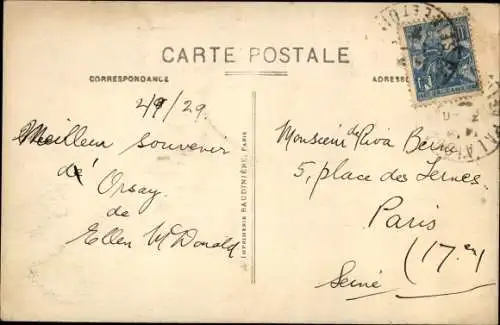 CARTE POSTALE
CORRESPONDANCE
ADRESSE
29.
Meilleur souvenir
d'Orsay
de
Ellen McDonald
IMPRIMERIE BAUDINIÈRE, PARIS
Monsieur de Riva Berni
5, place des Ternes
Paris
(17.en)
Seine